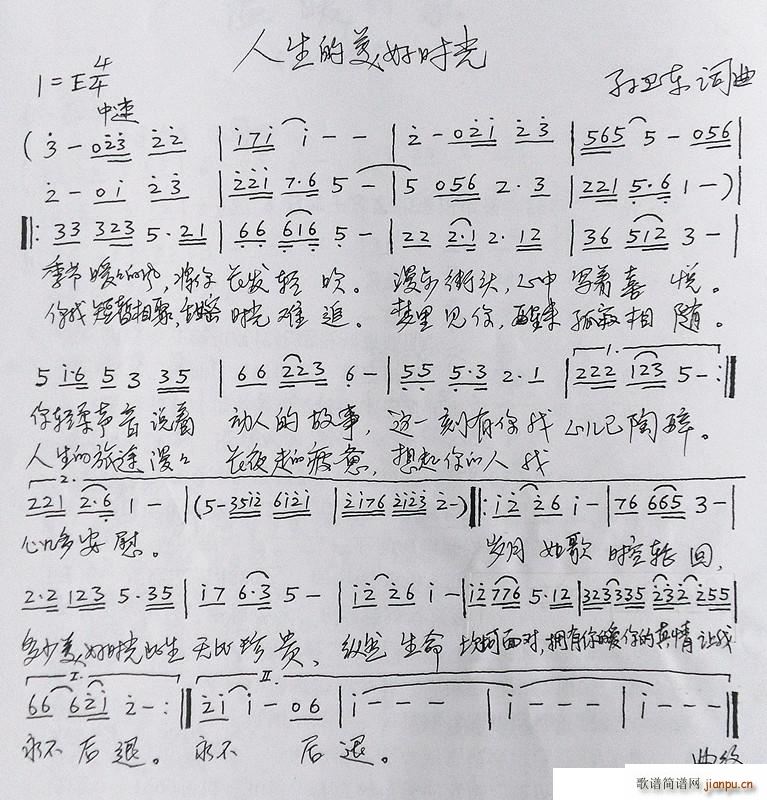 人生的美好时光
1=E 4/4
中速
孙卫东 词曲
( 3 - 0 2 3 2 2 | 1 7 1 1 - - | 2 - 0 2 1 2 3 | 5 6 5 5 - 0 5 6
2 - 0 1 2 3 | 2 2 1 7·6 5 - | 5 0 5 6 2·3 | 2 2 1 5·6 1 - ) |
‖: 3 3 3 2 3 5·2 1 | 6 6 6 1 6 5 - | 2 2 2·1 2·1 2 | 3 6 5 1 2 3 - |
季节暖暖的风,将你长发轻吹。漫步街头,心中写着喜悦。
你我短暂相聚,时光难追。梦里见你,醒来孤寂相随。
5 1·6 5 3 3 5 | 6 6 2 2 3 6 - | 5 5 5·3 2·1 | 1. 2 2 2 1 2 3 5 - :‖
你轻柔声音说着 动人的故事,这一刻有你我心儿已陶醉。
人生的旅途漫漫 长夜走的疲惫,想起你的人我
2. 2 2 1 2·6 1 - | ( 5 - 3 5 1 2 6 1 2 1 | 2 1 7 6 2 1 2 3 2 - ) ‖: 1 2 2 6 1 - | 7 6 6 6 5 3 - |
心儿多安慰。 岁月如歌 时空轮回,
2·2 1 2 3 5·3 5 | 1 7 6·3 5 - | 1 2 2 6 1 - | 1 2 7 7 6 5·1 2 | 3 2 3 3 3 5 2 3 2 2 5 5 |
多少美好时光此生无比珍贵、纵然生命坎坷面对,拥有你的暖你的真情让我
I. 6 6 6 2 1 2 - :‖ II. 2 1 1 - 0 6 | 1 - - - | 1 - - - | 1 - - - ‖
永不后退。永不 后退。
曲终
歌谱简谱网
jianpu.cn